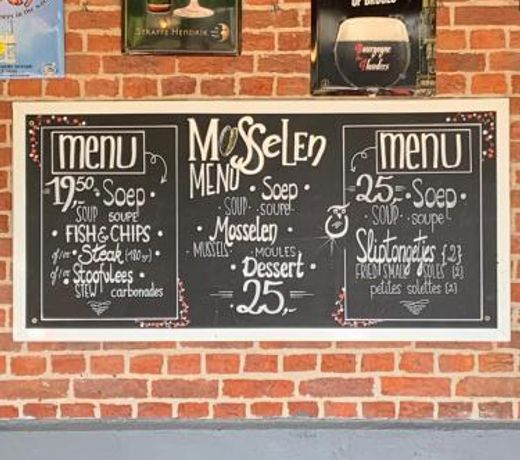 STRAFFE HENDRIK
Bourgogne
Flanders
menu
19,50
Soep
SOUP SOUPE
FISH & CHIPS
of/or Steak (180 gr)
of/or Stoofvlees
STEW carbonades
MOSSELEN
MENU
Soep
SOUP SOUPE
Mosselen
MUSSELS MOULES
Dessert
25,-
menu
25,- Soep
SOUP soupe
Sliptongetjes {2}
FRIED SMALL SOLES {2}
petites solettes {2}